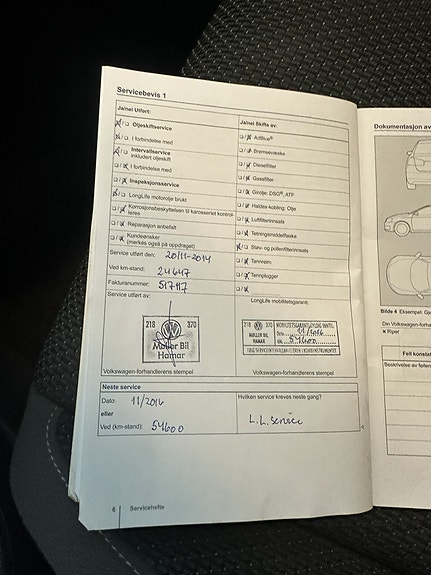 Servicebevis 1
Ja/nei Utført:
Oljeskiftservice
I forbindelse med
Intervallservice
inkludert oljeskift
I forbindelse med
Inspeksjonsservice
LongLife motorolje brukt
Korrosjonsbeskyttelsen til karosseriet kontrol-
leres
Reparasjon anbefalt
Kundeønsker
(merkes også på oppdraget)
Service utført den: 20/11-2014
Ved km-stand: 24647
Fakturanummer: 517117
Service utført av:
218 370
Møller Bil
Hamar
Volkswagen-forhandlerens stempel
Ja/nei Skiftes av:
AdBlue®
Bremsevæske
Dieselfilter
Gassfilter
Girolje: DSG®, ATF
Haldex-kobling: Olje
Luftfilterinnsats
Tetningsmiddelflaske
Støv- og pollenfilterinnsats
Tannreim
Tennplugger
LongLife mobilitetsgaranti:
218 370
MØLLER BIL
HAMAR
MOBILITETSGARANTI GYLDIG INNTIL:
Dato: 11/2016
KM. 54600
Volkswagen-forhandlerens stempel
Neste service
Dato: 11/2016
eller
Ved (km-stand): 54600
Hvilken service kreves neste gang?
L.L. service
6 Servicehefte
Dokumentasjon av
Bilde 4 Eksempel:
Din Volkswagen-forha
Riper
Feil konstat
Beskrivelse av feilen